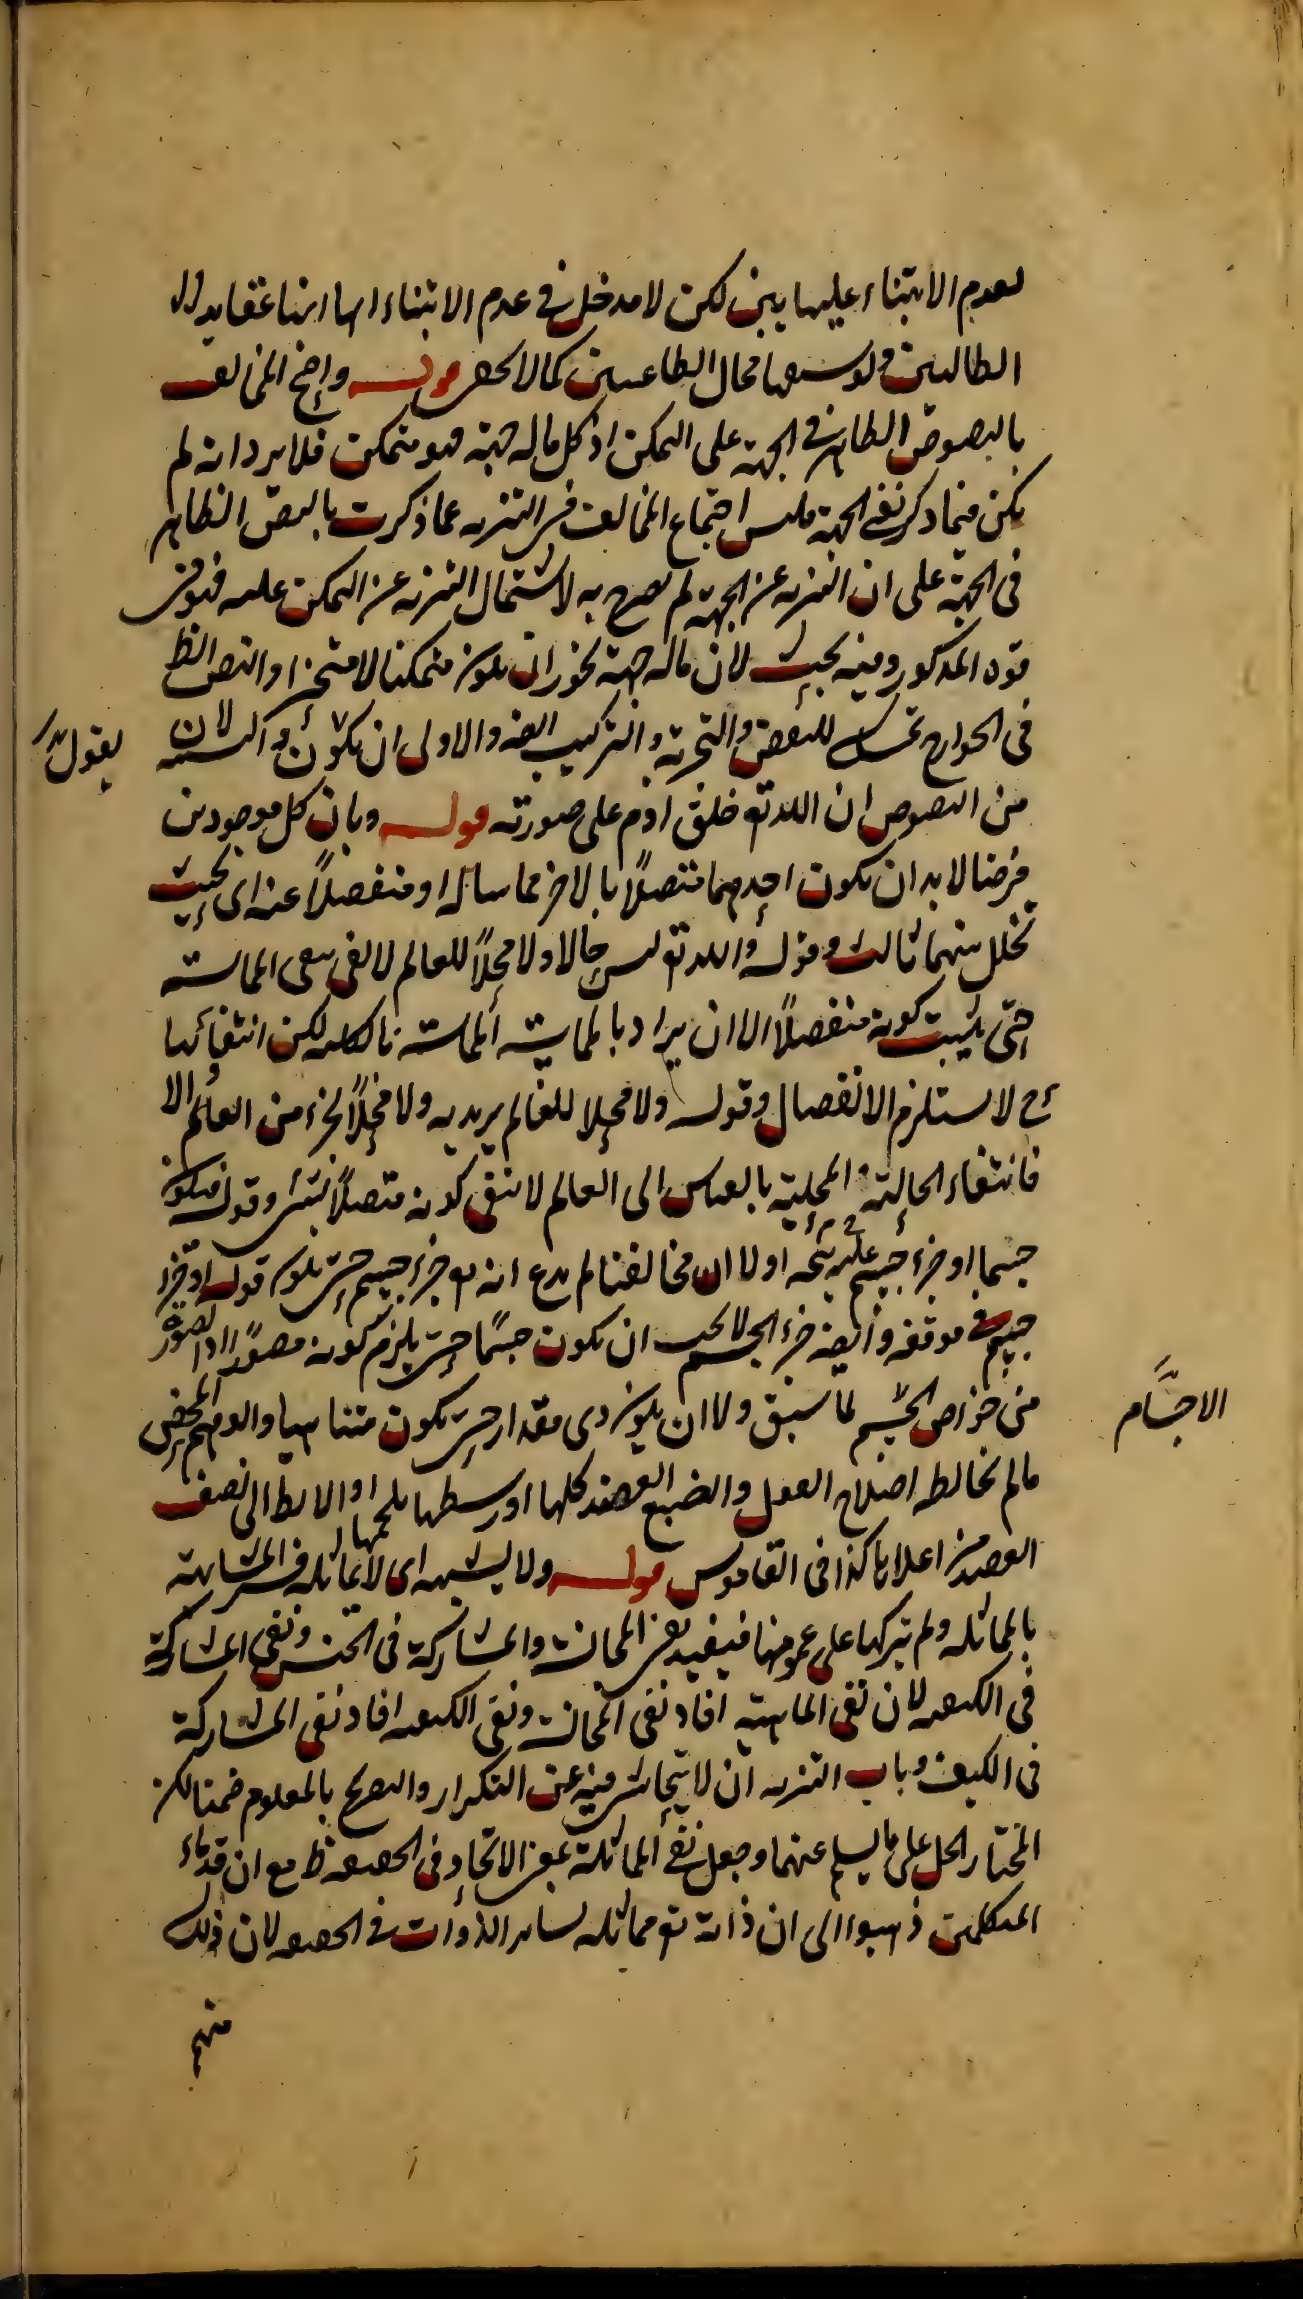 لعدم الابتناء عليها يبين لكن لا مدخل في عدم الابتناء
الطالبين وتوسعها محال الطاعنين كما لا يخفى قوله واحتج المخالف
بالنصوص الظاهرة في الجهة على التمكن اذ كل ما له جهة فهو متمكن فلا يرد انه لم
يكن فيما ذكر نفي الجهة فليس احتجاج المخالف في التنزيه عما ذكرت بالنص الظاهر
في الجهة على ان التنزيه عن الجهة لم يصرح به لاشتمال التنزيه عن التمكن عليه فهو في
قوة المذكور وفيه بحث لان ماله جهة يجوز ان يكون متمكنا لا متحيزا والنص الظ
في الجوارح تمسك للتبعض والتجزية والتركيب ايضه والاولى ان يكون
يقول
من النصوص ان الله تع خلق ادم على صورته قوله وبان كل موجودين
فرضا لا بد ان يكون احدهما متصلا بالاخر مماسا له او منفصلا عنه اى بحيث
تخلل بينهما ثالث وقوله والله تع ليس حالا ولا محلا للعالم لا لنفي المماسة
حتى يثبت كونه منفصلا الا ان يراد بالمماسة المماسة بالكلية لكن انتفائها
ح لا يستلزم الانفصال وقوله ولا محلا للعالم يريد به ولا محلا لجزء من العالم والا
فانتفاء الحالية والمحلية بالقياس الى العالم لا ينفي كونه متصلا بشئ وقوله فيكون
جسما او جزء جسم عليه اولا ان مخالفنا لم يدع انه تع جزء جسم حتى يكون قوله او جزء
جسم في موقفه وايضه جزء الجسم لا يجب ان يكون جسما حتى يلزم كونه مصورا اذ التصور
من خواص الجسم لما سبق ولا ان يكون ذى مقدار حتى يكون متناهيا والوهم المحض
الاجسام
ما لم يخالطه اصلاح العقل والضبع العضد كلها او وسطها بلحمها او الابط الى نصف
العضد من اعلاه كذا في القاموس قوله ولا يشبهه اى لا يماثله فسر المشابهة
بالمماثلة ولم يتركها على عمومها فيفيد نفي المجانسة والمشاركة في الجنس ونفي المشاركة
في الكيفية لان نفي الماهية افاد نفي المجانسة ونفي الكيفية افاد نفي المشاركة
في الكيف وباب التنزيه ان لا يتحاشى فيه عن التكرار والتصريح بالمعلوم ضمنا لكن
المختار الحمل على ما يسلم عنهما وجعل نفي المماثلة بمعنى الاتحاد في الحقيقة ظ مع ان قدماء
المتكلمين ذهبوا الى ان ذاته تع مماثلة لسائر الذوات في الحقيقة لان ذلك
منهم